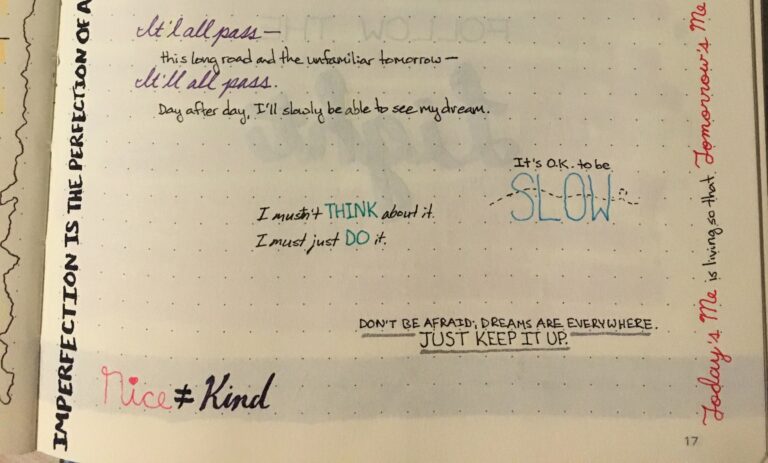 IMPERFECTION IS THE PERFECTION OF A
It'l all pass—
this long road and the unfamiliar tomorrow—
It'll all pass.
Day after day, I'll slowly be able to see my dream.
It's O.K. to be
SLOW
I mustn't THINK about it.
I must just DO it.
DON'T BE AFRAID; DREAMS ARE EVERYWHERE.
JUST KEEP IT UP.
Nice ≠ Kind
Today's Me is living so that Tomorrow's Me
17